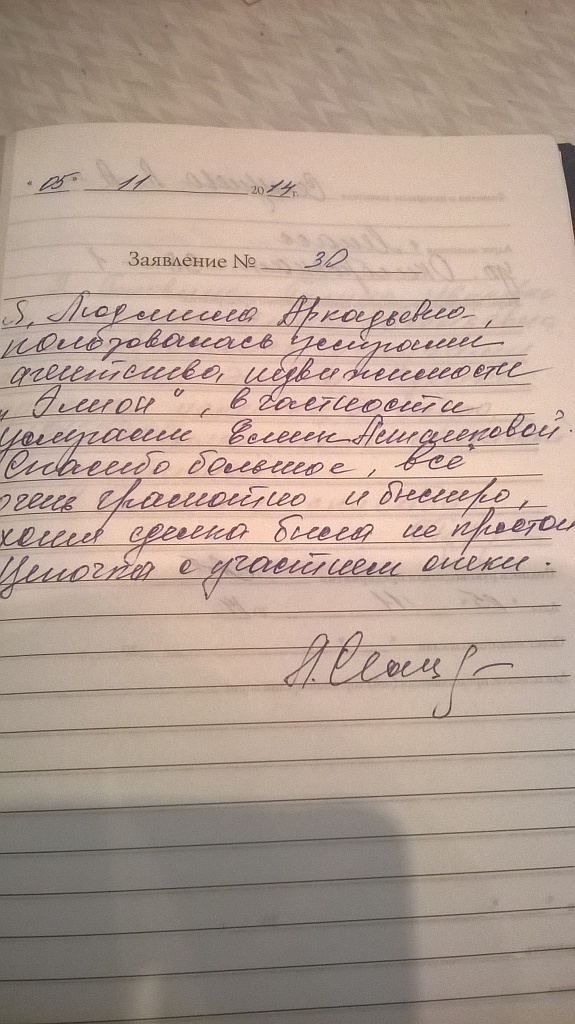 "05" 11 2014г.
Заявление № 30
Я, Людмила Аркадьевна,
пользовалась услугами
агентства недвижимости
"Элион", в частности
услугами Елены
Спасибо большое, всё
очень грамотно и быстро,
хотя сделка была не простой
Цепочка с участием опеки.